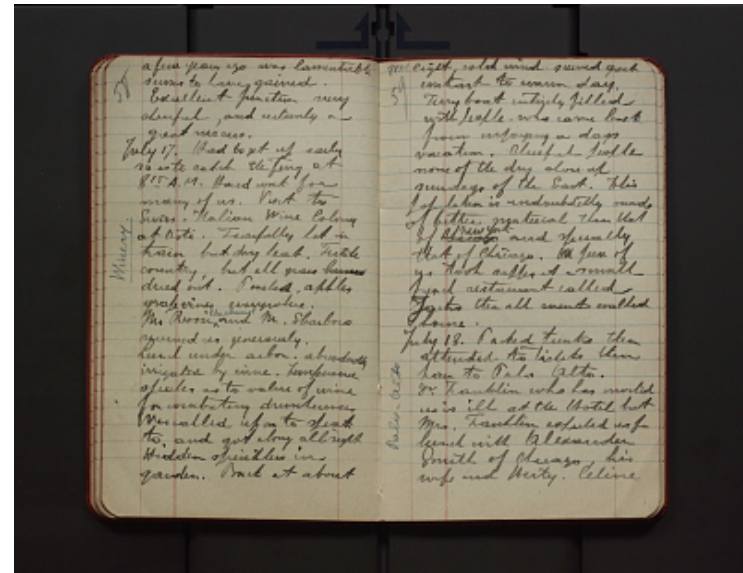 58
a few years ago was lamentable
seems to have gained.
Excellent function very
cheerful, and certainly a
great success.
July 17. Had to get up early
so as to catch the ferry at
8 15 A.M. Hard work for
many of us. Visit to
Swiss-Italian Wine Colony
Winery
at Asti. Fearfully hot in
train but dry heat. Fertile
country, but all grass
dried out. Peaches, apples
grapevines everywhere.
Mr Rossi, and Mr. Sbarboro
received us generously.
Lunch under arbor. abundantly
irrigated by wine.
speeches as to value of wine
for combating drunkenness
Was called upon to speak
to, and got along allright
Hidden sprinklers in
garden. Back at about
59
eight, cold wind
contrast to warm day.
Ferryboat entirely filled
with people who came back
from enjoying a days
vacation. Cheerful people
none of the dry alone of
sundays of the East. This
population is undoubtedly made
of better material than that
of New York and specially
that of Chicago. A few of
us took supper at small
french restaurant called
then all went walked
home.
July 18. Packed trunks then
attended to tickets then
train to Palo Alto.
Palo Alto
Dr. Franklin who has invited
us is ill at the Hotel but
Mrs. Franklin expected us for
lunch with Alexander
Smith of Chicago, his
wife and Herty. Celine